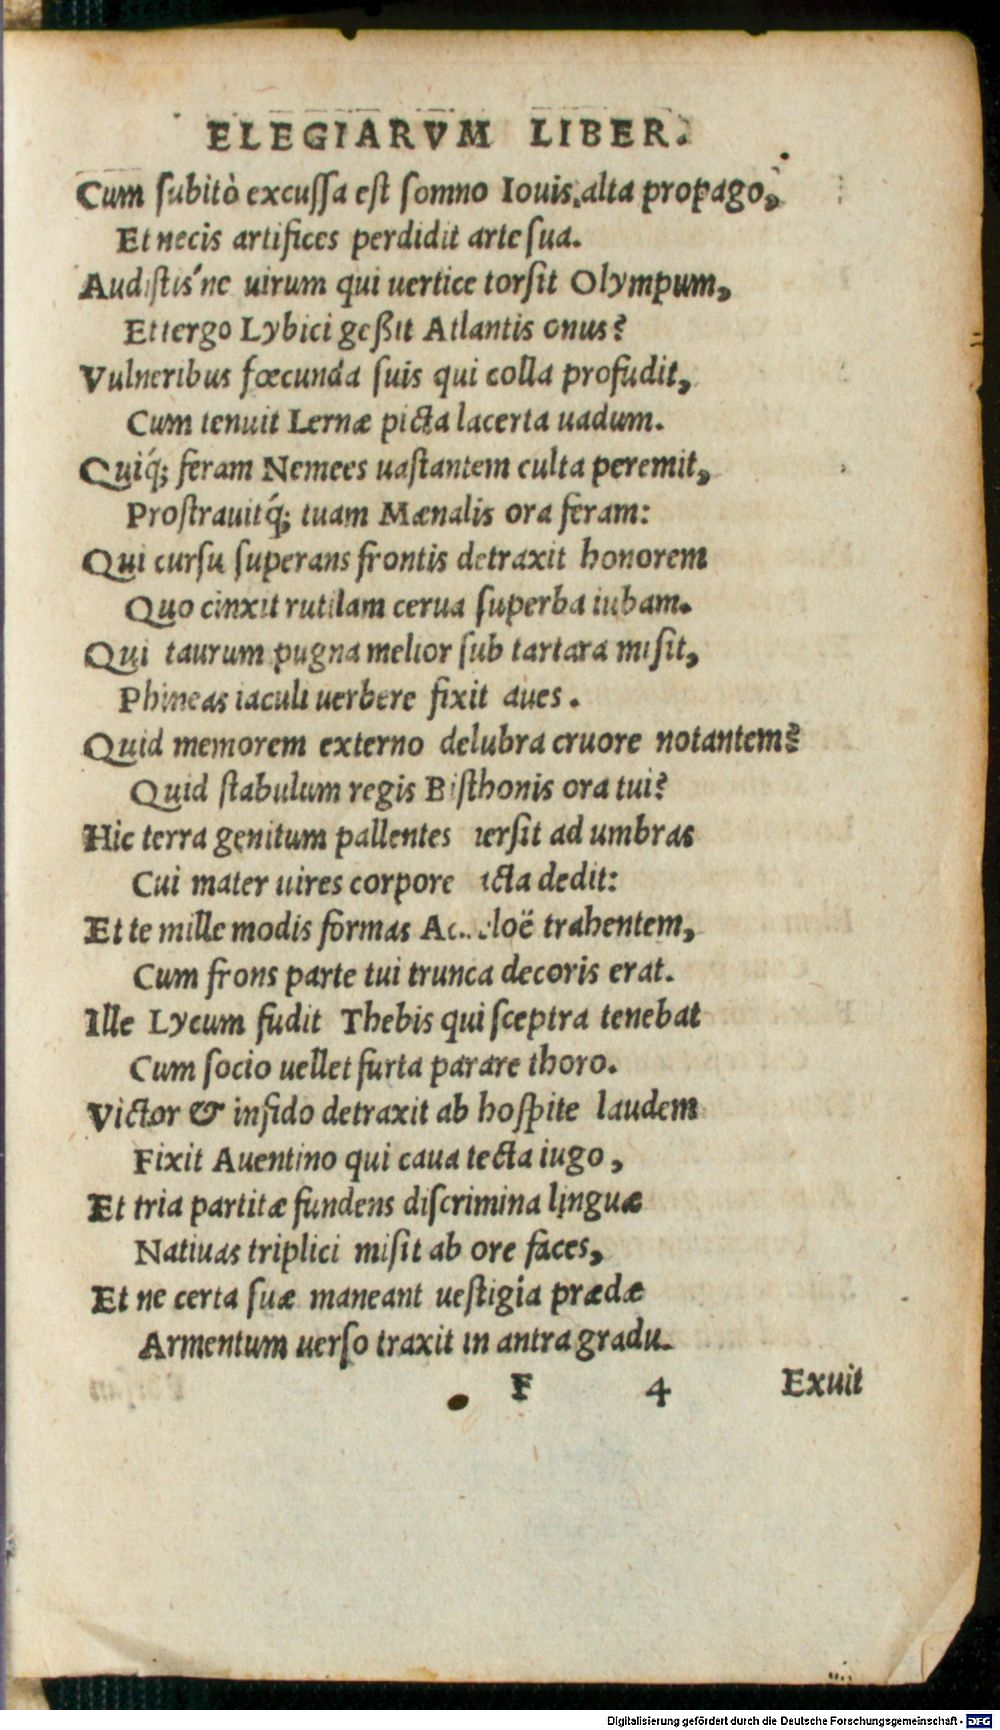 ELEGIARVM LIBER.
Cum subitò excussa est somno Iouis, alta propago,
Et necis artifices perdidit arte sua.
Audistis´ne uirum qui uertice torsit Olympum,
Et tergo Lybici geßit Atlantis onus?
Vulneribus fœcunda suis qui colla profudit,
Cum tenuit Lernæ picta lacerta uadum.
Quiq́; feram Nemees uastantem culta peremit,
Prostrauitq́; tuam Mænalis ora feram:
Qui cursu superans frontis detraxit honorem
Quo cinxit rutilam cerua superba iubam.
Qui taurum pugna melior sub tartara misit,
Phineas iaculi uerbere fixit aues.
Quid memorem externo delubra cruore notantem?
Quid stabulum regis Bisthonis ora tui?
Hic terra genitum pallentes ad umbras
Cui mater uires corpore dedit:
Et te mille modis formas trahentem,
Cum frons parte tui trunca decoris erat.
Ille Lycum fudit Thebis qui sceptra tenebat
Cum socio uellet furta parare thoro.
Victor & infido detraxit ab hospite laudem
Fixit Auentino qui caua tecta iugo,
Et tria partitæ fundens discrimina linguæ
Natiuas triplici misit ab ore faces,
Et ne certa suæ maneant uestigia prædæ
Armentum uerso traxit in antra gradu.
F 4 Exuit
Digitalisierung gefördert durch die Deutsche Forschungsgemeinschaft - DFG